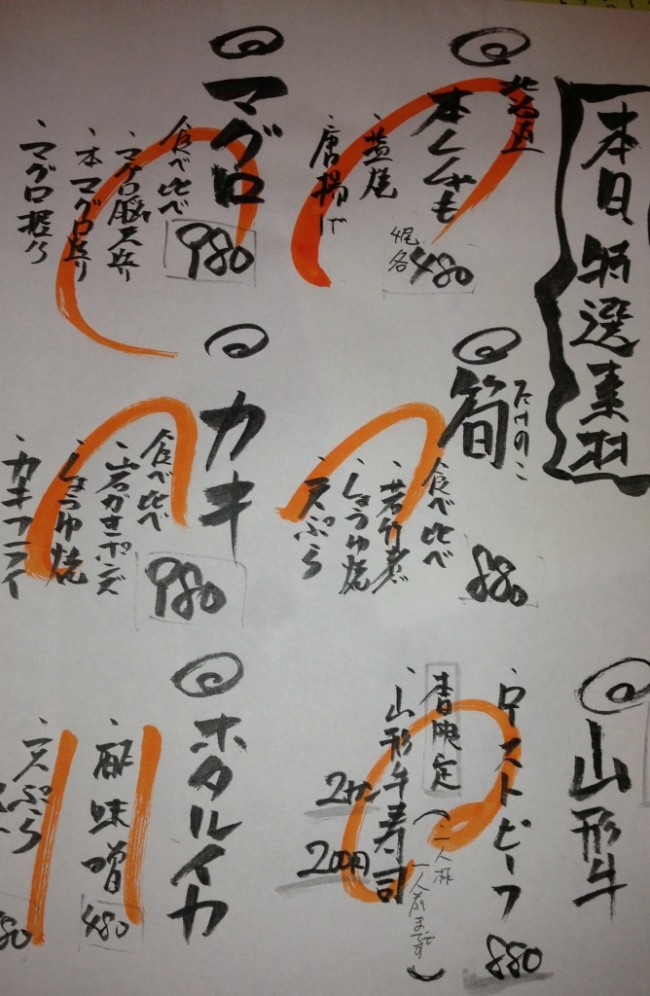 本日特選素材
北海道
本ししゃも
・姿焼
・唐揚げ
480
マグロ
食べ比べ
・マグロ脳天炙り
・本マグロ炙り
・マグロ握り
980
たけのこ
筍
食べ比べ
・若竹煮
・しょうゆ焼
・天ぷら
880
カキ
食べ比べ
・岩がきポンズ
・しょうゆ焼
・カキフライ
980
山形牛
・ローストビーフ
880
本日限定
・山形牛寿司
2カン
200円
ホタルイカ
・酢味噌
480
・天ぷら